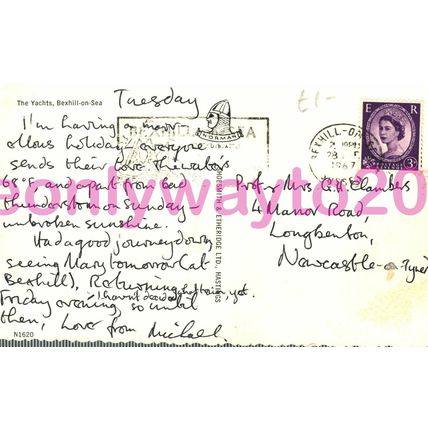 The Yachts, Bexhill-on-Sea
Tuesday
£1-
I'm having a marv-
ellous holiday everyone
sends their love. The water's
68°F and apart from bad
thunderstorm on Sunday
unbroken sunshine.
Had a good journey down
seeing Mary tomorrow (at
Bexhill), Returning
Friday evening, so until
then, Love from Michael.
I haven't decided yet
N1620
SHOESMITH & ETHERIDGE, LTD., HASTINGS
NORMAN
BEXHILL-ON-
1967
E R
3D
Prof & Mrs G. A. Chambers
4 Manor Road
Longbenton,
Newcastle-on-Tyne
eonlywayto20